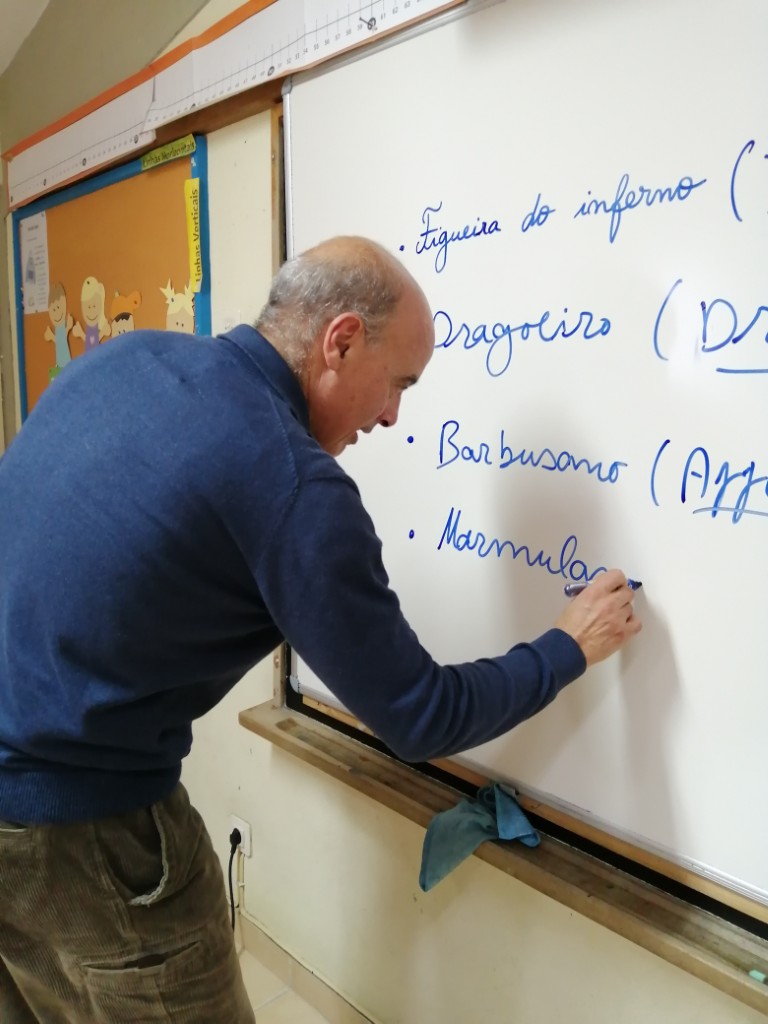 Linhas Horizontais
Linhas Verticais
• Figueira do inferno (
Dragoeiro (Dr
• Barbusano (Apo
• Marmulan